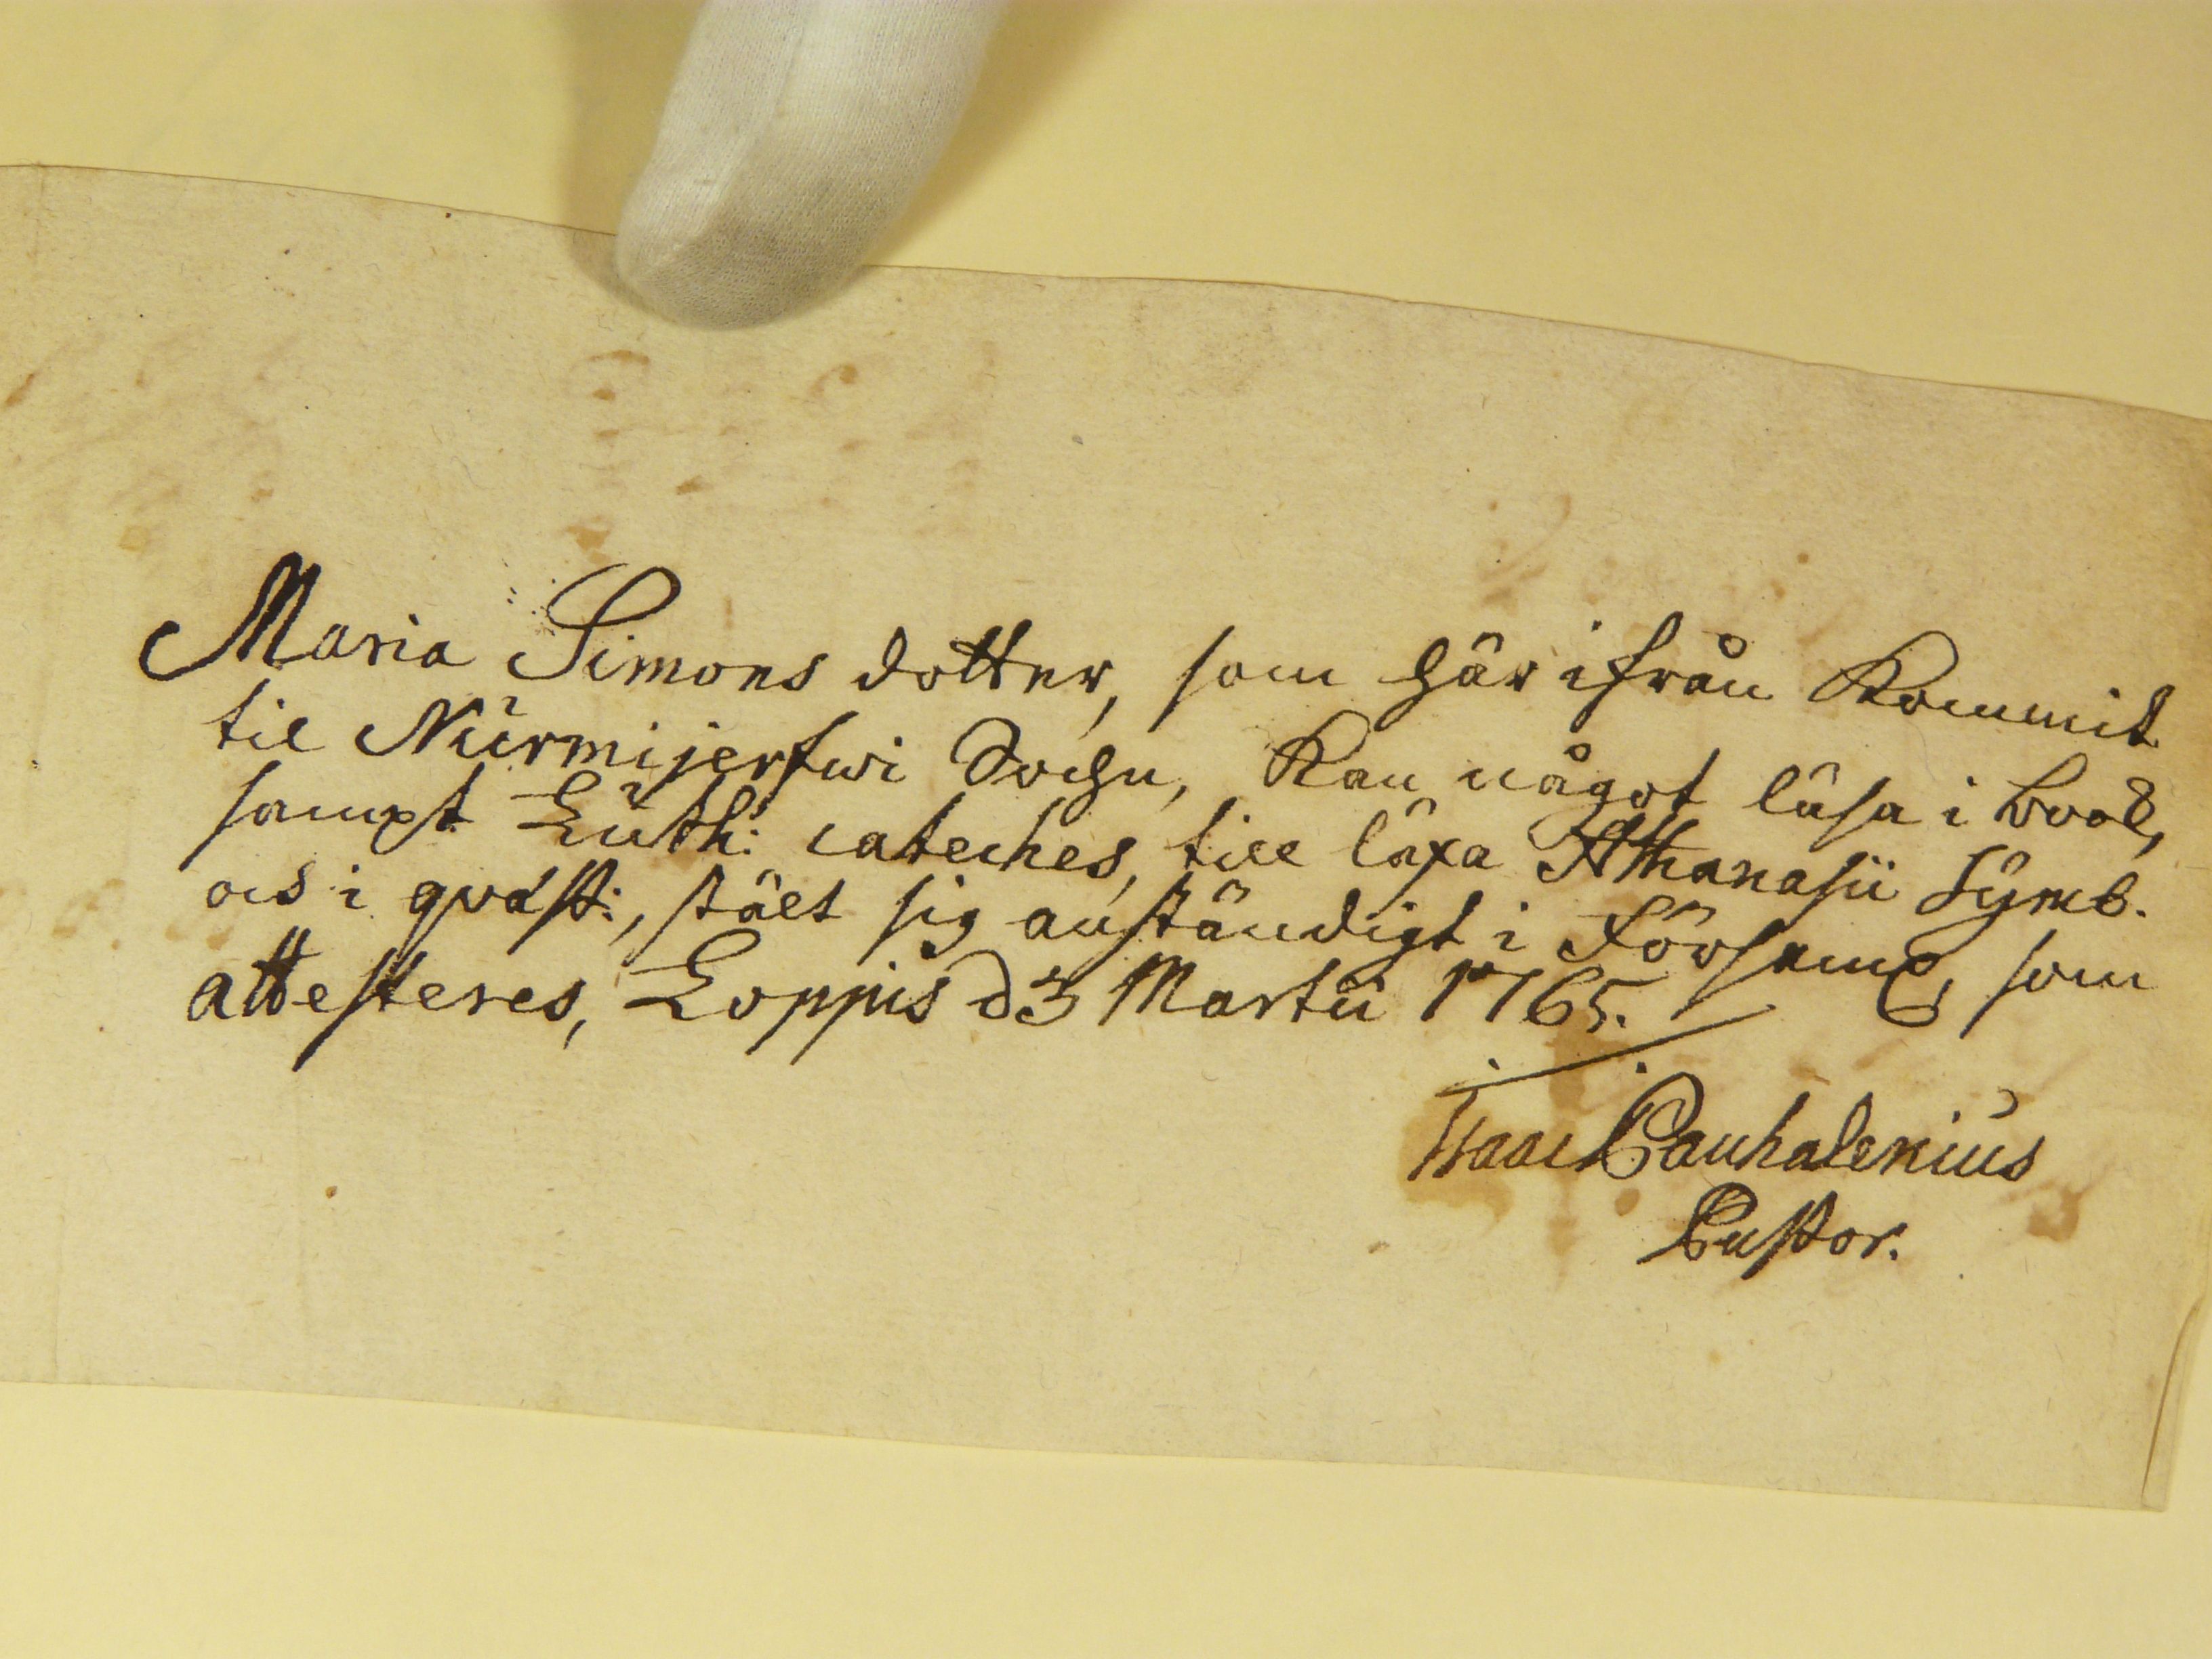 Maria Simons dotter, som här ifrån Kommit
til Nurmijerfwi Sochn, Kan något läsa i book,
sampt Luth: cateches, till läxa Athanasii Symb.
ock i qvæst:, stält sig anständigt i Församl, som
attesteres, Loppis d 3 Martii 1765.
Isaac Pauhalenius
Pastor.